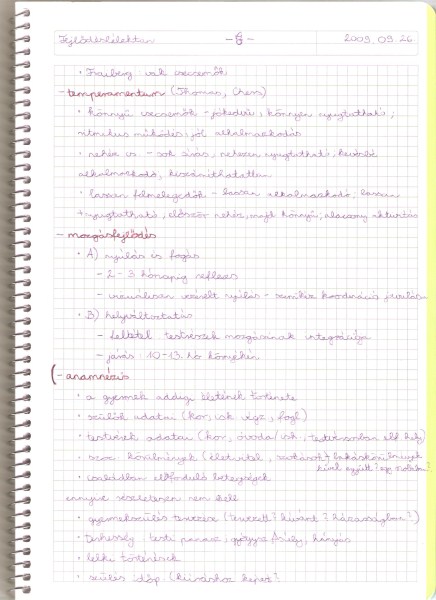 Fejlődéslélektan -6- 2009.09.26.
• Fraiberg: vak csecsemők
- temperamentum (Thomas, Chess)
• könnyű csecsemők - jókedvű, könnyen nyugtatható,
ritmikus működés, jól alkalmazkodás
• nehéz cs. - sok sírás, nehezen nyugtatható, kevésbé
alkalmazkodó, kiszámíthatatlan
• lassan felmelegedők - lassan alkalmazkodó, lassan
nyugtatható, először nehéz, majd könnyű, alacony aktivitás
- mozgásfejlődés
• A) nyúlás és fogás
- 2-3 hónapig reflexes
- vizuálisan vezérelt nyúlás - szem-kéz koordináció javulása
• B) helyváltoztatás
- feltétel: testrészek mozgásának integrációja
- járás: 10-13. hó környékén
(- anamnézis
• a gyermek addigi életének története
• szülők adatai (kor, isk. végz., fogl.)
• testvérek adatai (kor, óvoda/isk., testvérsorban elf. hely)
• szoc. körülmények (életvitel, szokások, lakáskörülmények
kivel együtt? egy szobában?
• családban előforduló betegségek
ennyire részletesen nem kell
• gyermekszülés tervezése (tervezett? kívánt? házasságban?)
• terhesség: testi panasz, gyógyszer, hányás
• lelki történések
• szülés időp. (kiíráshoz képest?